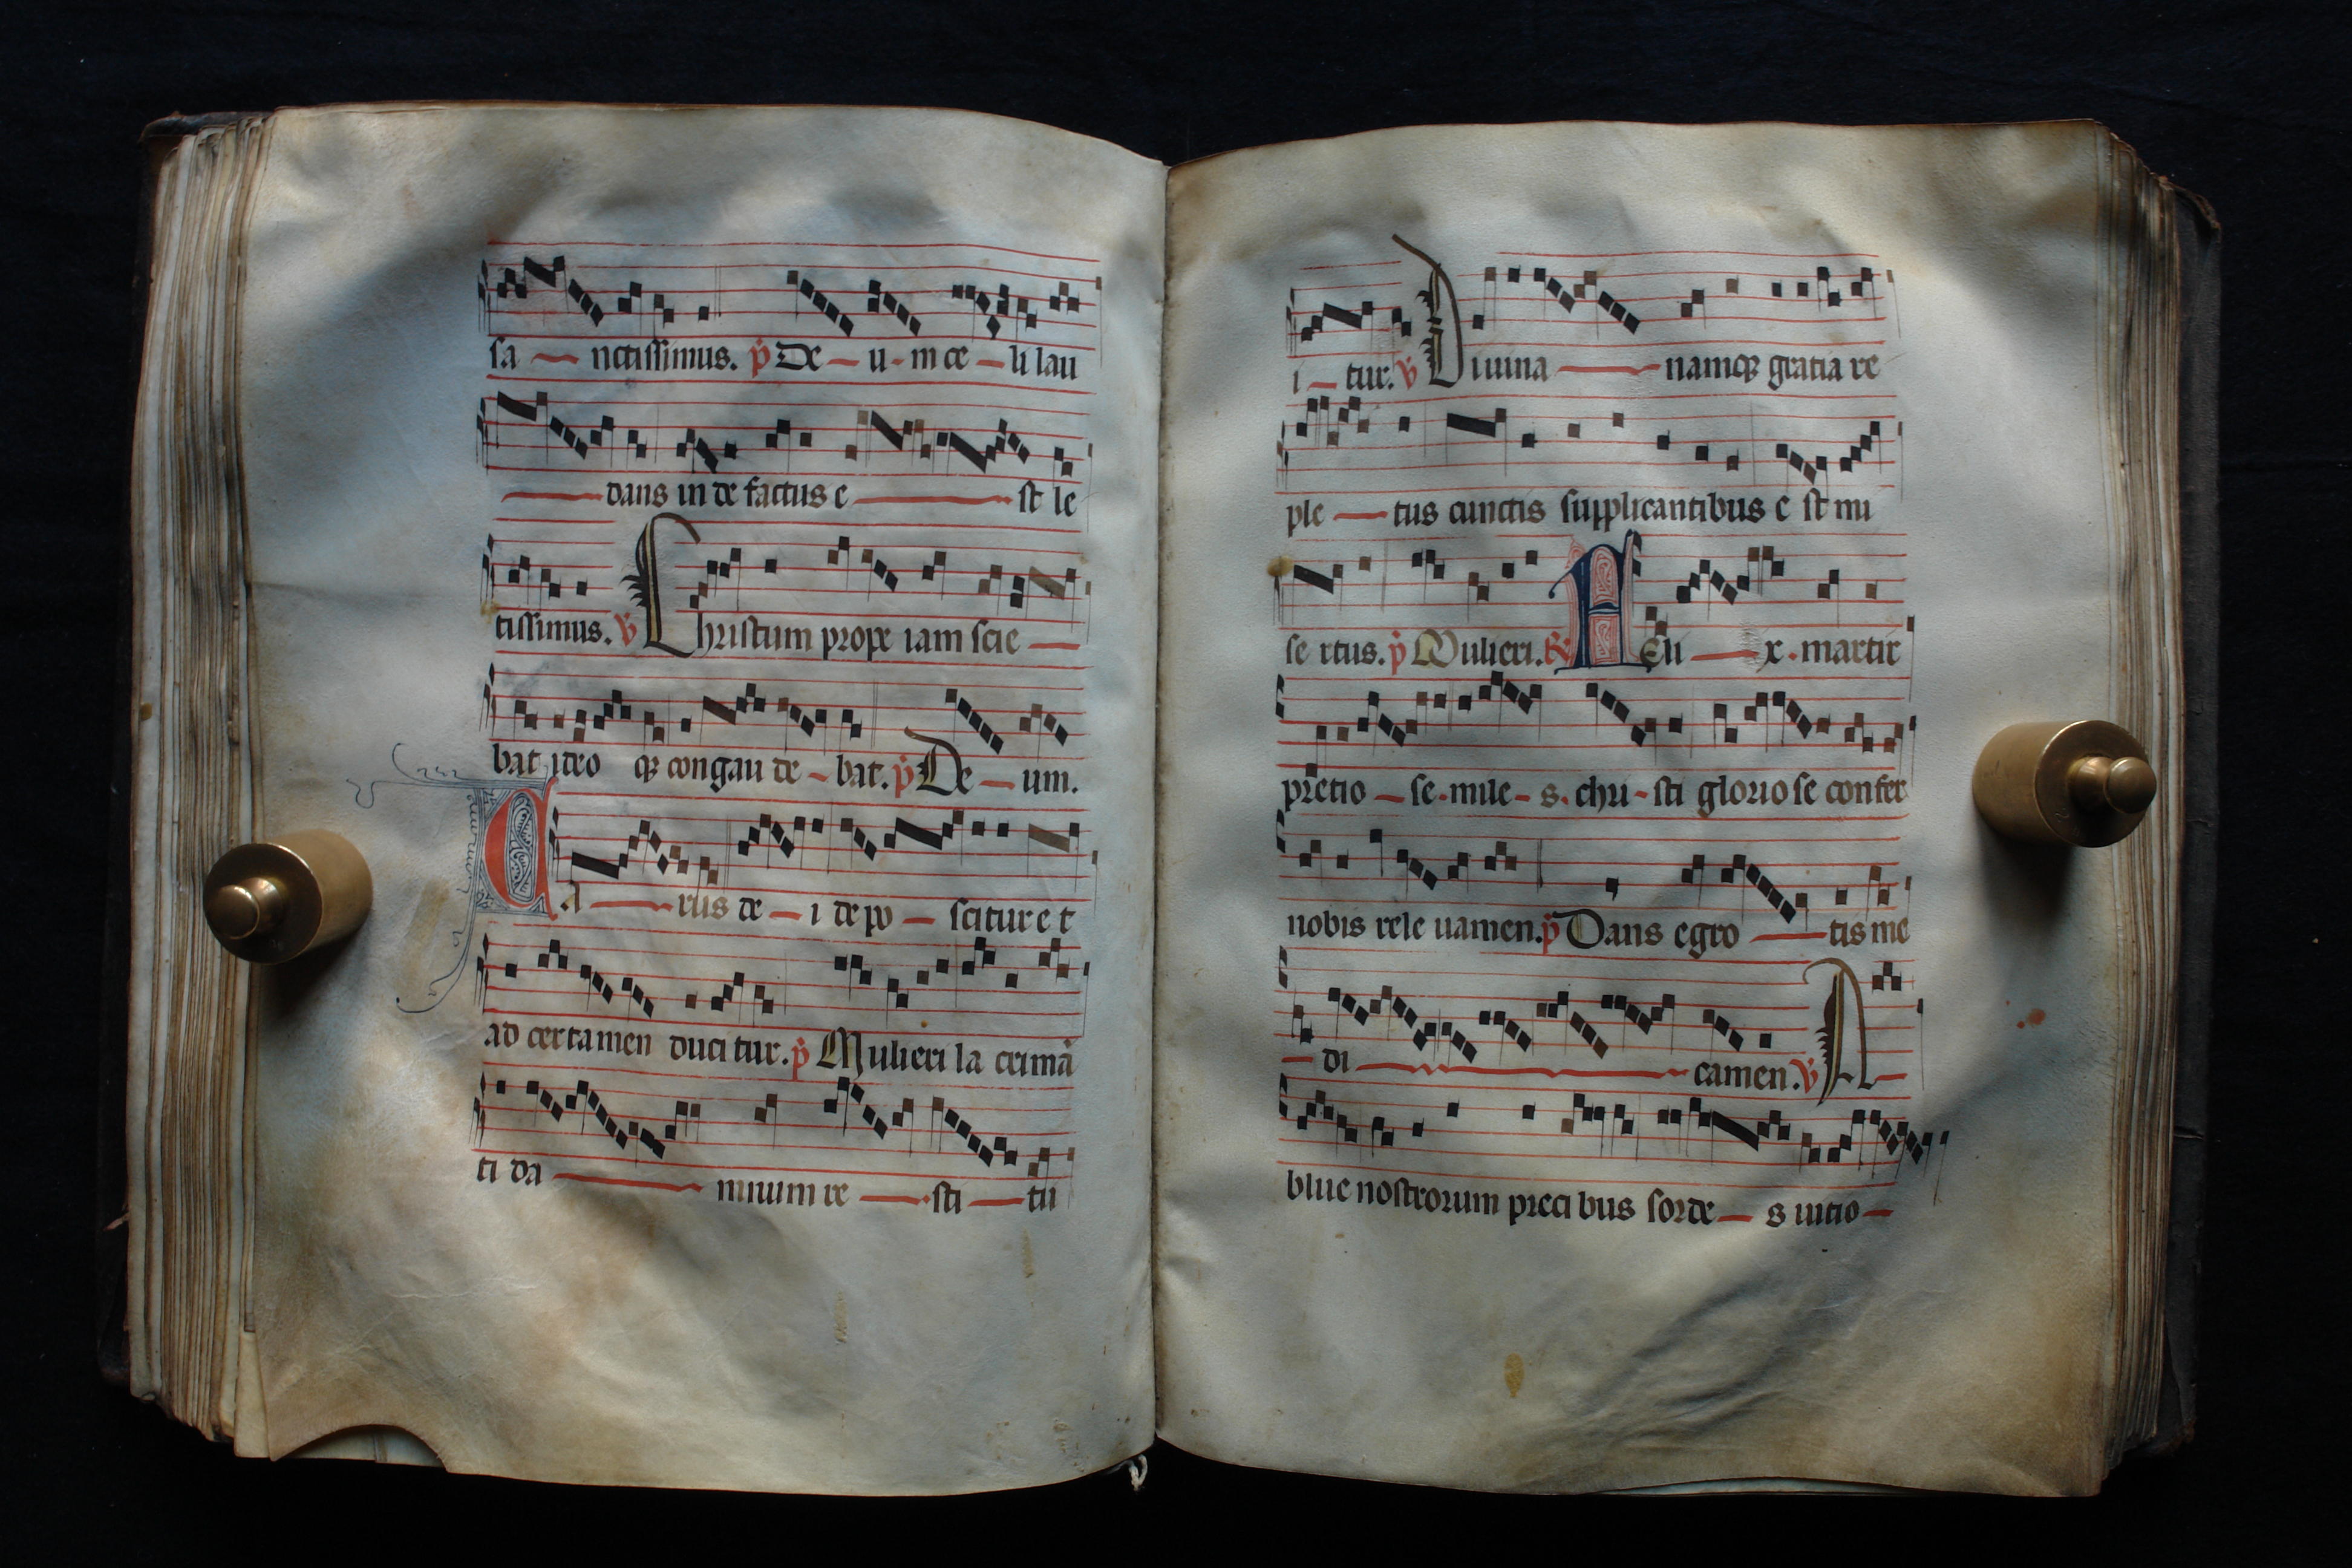 sa — nctissimus. p̄ De — u - m ce — li lau
— dans in de factus e — st le
tissimus. v̄ Christum prope iam scie —
bat ideo qꝫ congau de - bat. p̄ De — um.
CA — rus de — i de po — scitur e t
ad certamen duci tur. p̄ Mulieri la crimā
ti da — miuum re — sti — tu
i — tur. v̄ Diuina — namqꝫ gratia re
ple — tus cunctis supplicantibus e st mi
se rtus. p̄ Mulieri. ℟ AEli — x. martir
pretio — se. mile - s. chri - sti gloriose confer
nobis rele uamen. p̄ Dans egro — tis me
— di — camen. v̄ A —
blue nostrorum preci bus sorde — s uitio —